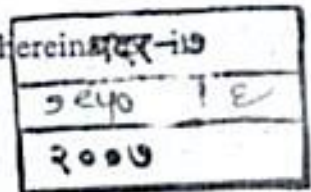 herein वदर-१७
१९५० १६
२००७